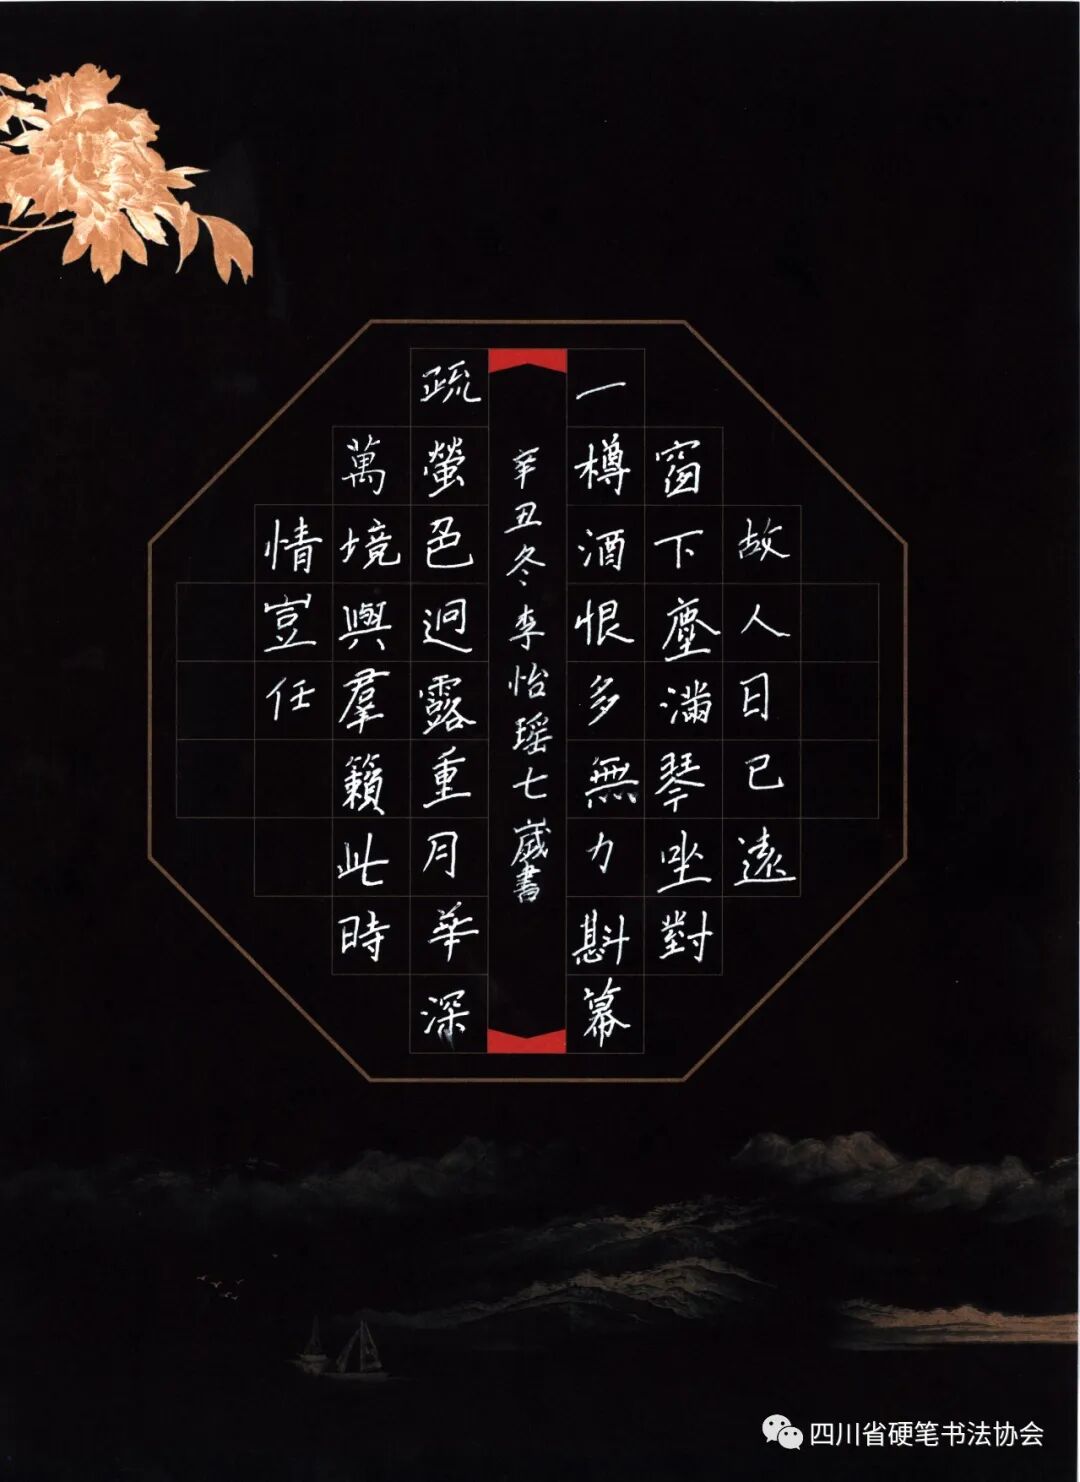 故人日已遠
窗下塵滿琴坐對
一樽酒恨多無力斟幕
疏螢色迥露重月華深
萬境與羣籟此時
情豈任
辛丑冬李怡瑶七歲書
四川省硬笔书法协会